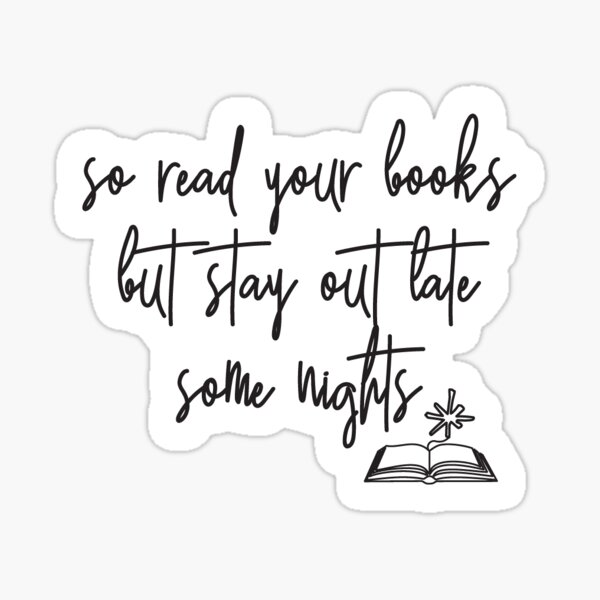 so read your books
but stay out late
some nights